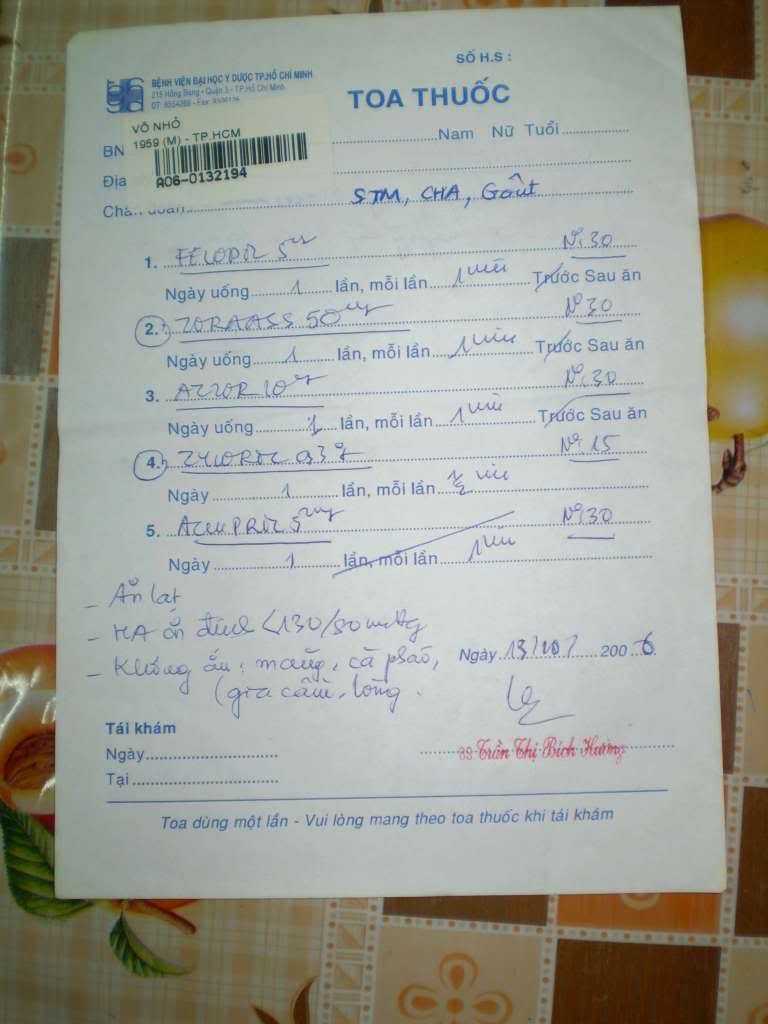 SỐ H.S :
BỆNH VIỆN ĐẠI HỌC Y DƯỢC TP.HỒ CHÍ MINH
215 Hồng Bàng - Quận 5 - TP.Hồ Chí Minh
TOA THUỐC
VÕ NHỎ
1959 (M) - TP.HCM
A06-0132194
BN Nam Nữ Tuổi
Địa
STM, CHA, Goût
1. FELODIL 5mg No 30
Ngày uống 1 lần, mỗi lần 1 viên Trước Sau ăn
2. ZORAASS 50mg No 30
Ngày uống 1 lần, mỗi lần 1 viên Trước Sau ăn
3. AZZOR 10mg No 30
Ngày uống 1 lần, mỗi lần 1 viên Trước Sau ăn
4. ZYLORIC 0,3g No 15
Ngày 1 lần, mỗi lần ½ viên
5. 5mg No 30
Ngày 1 lần, mỗi lần 1 viên
- Ăn lạt
- HA ổn định <130/80 mmHg
- Không ăn : măng, cà pháo,
(gia cầm, lòng.
Ngày 13/10/ 2006
Tái khám
Ngày
Tại
BS Trần Thị Bích Hương
Toa dùng một lần - Vui lòng mang theo toa thuốc khi tái khám